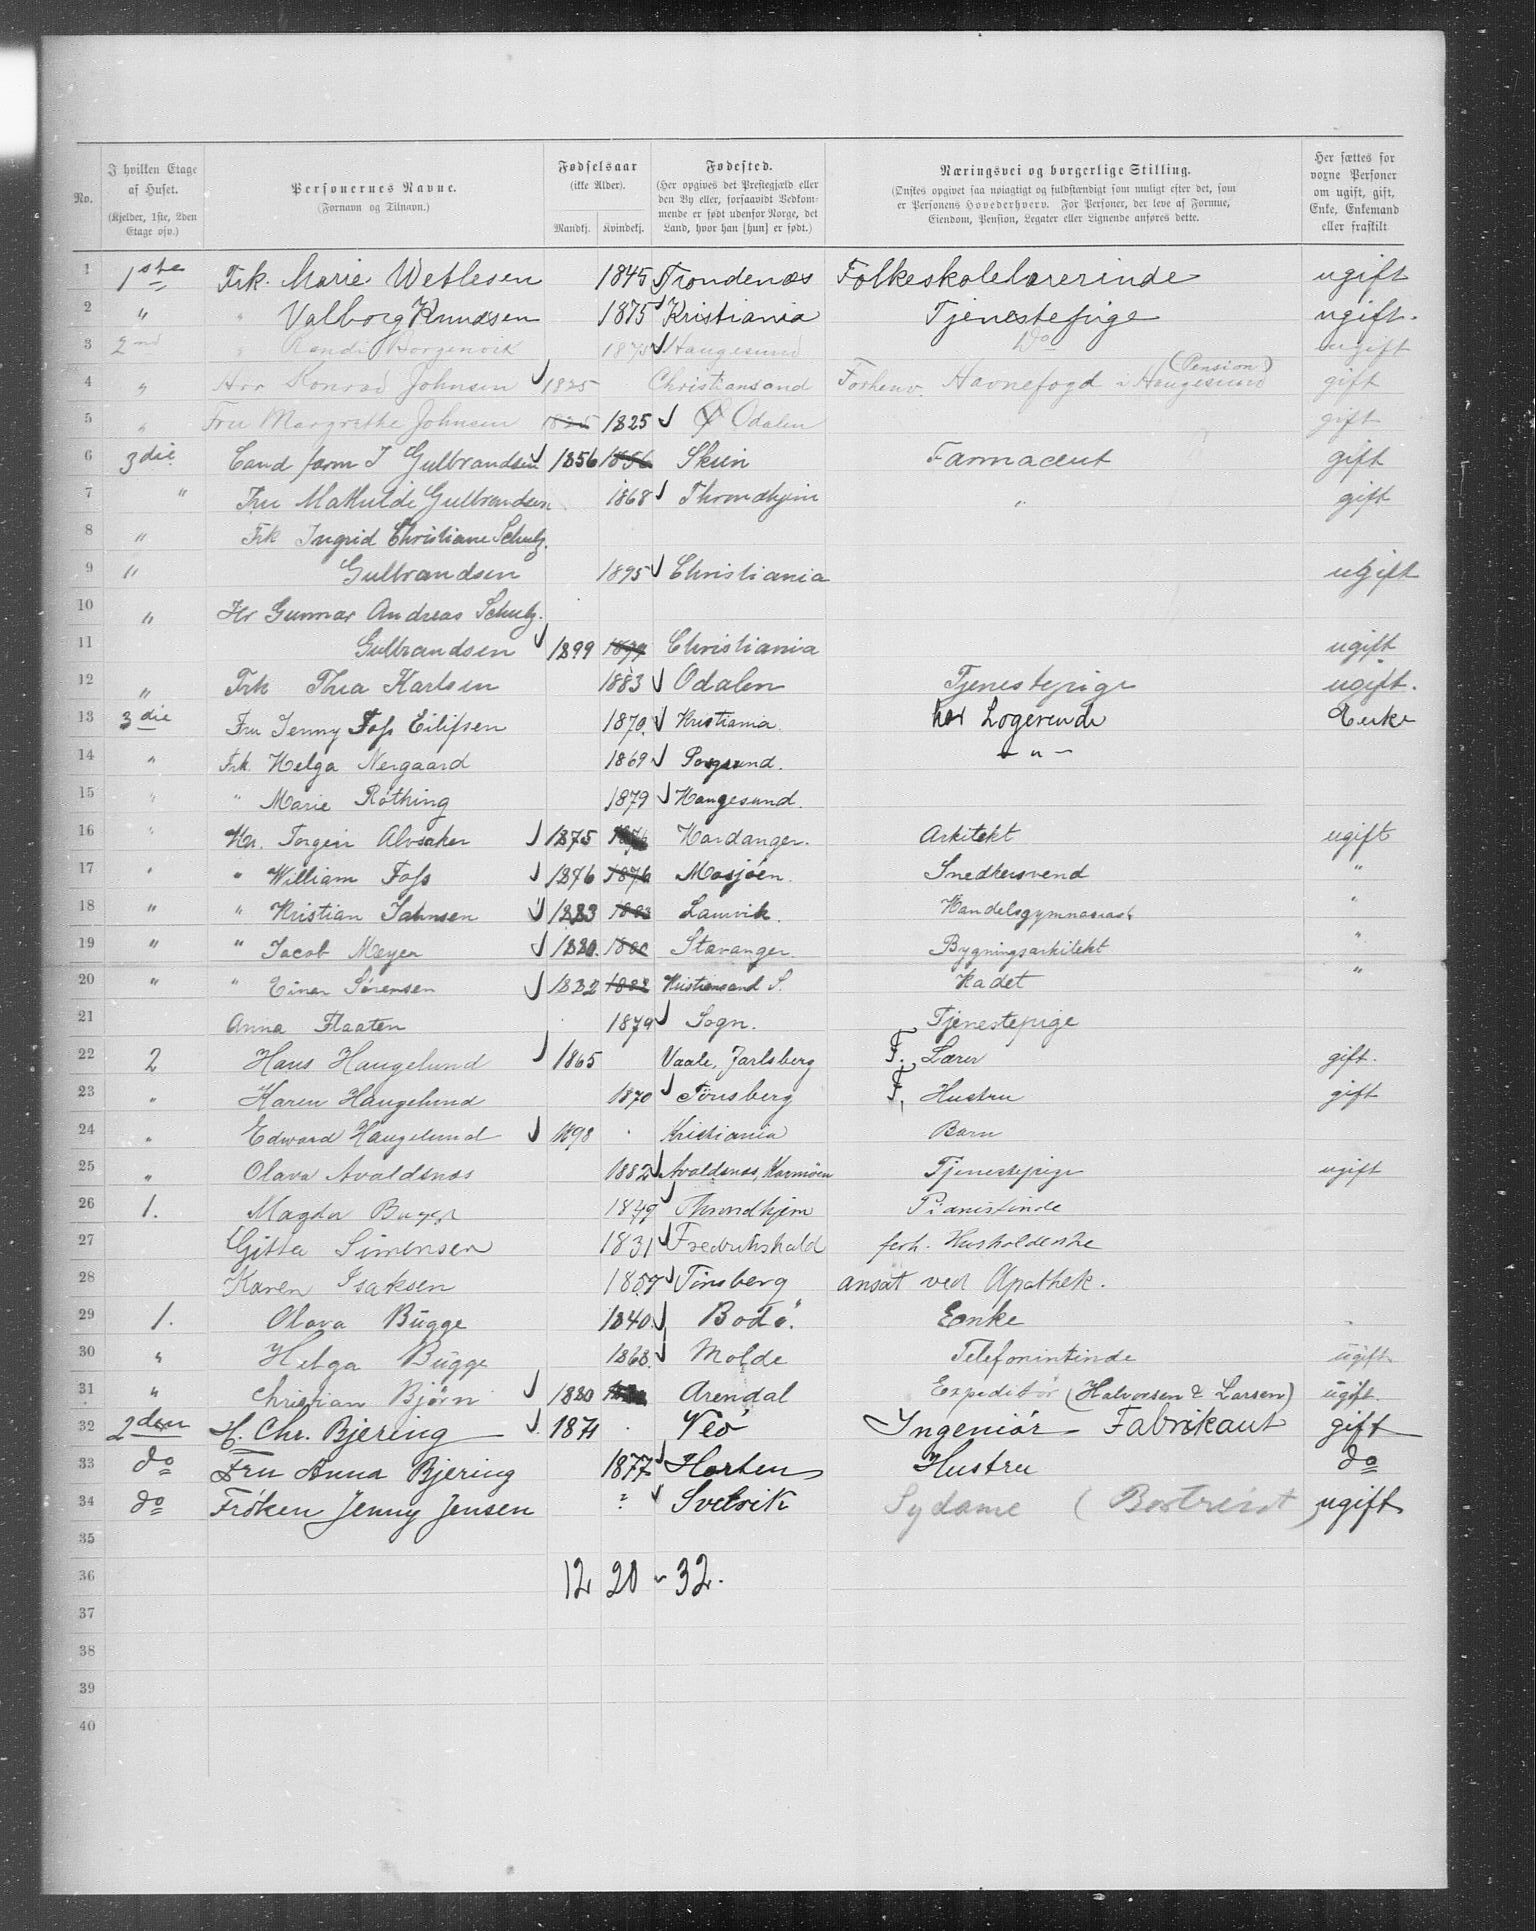 No. | I hvilken Etage af Huset. (Kjelder, 1ste, 2den Etage osv.) | Personernes Navne. (Fornavn og Tilnavn.) | Fødselsaar (ikke Alder). Mandkj. | Kvindekj. | Fødested. (Her opgives det Prestegjæld eller den By eller, forsaavidt Vedkommende er født udenfor Norge, det Land, hvor han [hun] er født.) | Næringsvei og borgerlige Stilling. (Ønskes opgivet saa nøiagtigt og fuldstændigt som muligt efter det, som er Personens Hovederhverv. For Personer, der leve af Formue, Eiendom, Pension, Legater eller Lignende anføres dette. | Her sættes for voxne Personer om ugift, gift, Enke, Enkemand eller fraskilt
1 1ste Frk. Marie Wetlesen 1845 Trondenæs Folkeskolelærerinde ugift
2 " " Valborg Knudsen 1875 Kristiania Tjenestepige ugift.
3 2nd " Randi Borgenvik 1875 Haugesund Do ugift
4 " Hrr Konrad Johnsen 1825 Christiansand Forhenv. Havnefogd i Haugesund (Pension) gift
5 " Fru Margrethe Johnsen 1825 1825 Ø Odalen gift
6 3die Cand farm J Gulbrandsen 1856 1856 Skien Farmaceut gift
7 " Fru Mathilde Gulbrandsen 1868 Throndhjem " gift
8 " Frk Ingrid Christiane Schulz.
9 " Gulbrandsen 1895 Christiania ugift
10 " Hr Gunnar Andreas Schulz.
11 Gulbrandsen 1899 1899 Christiania ugift
12 " Frk Thea Karlsen 1883 Odalen Tjenestepige ugift.
13 3die Fru Jenny Foss Eilifsen 1870. Kristiania. har Logerende Enke
14 " Frk. Helga Nergaard 1869 Porsgrund. - " -
15 " " Marie Røthing 1879 Haugesund.
16 " Hr. Torgeir Alvsaker 1875 Hardanger. Arkitekt ugift
17 " " William Foss 1876 1876 Mosjøen. Snedkersvend "
18 " " Kristian Jahnsen 1883 1883 Laurvik. Handelsgymnasiast "
19 " " Jacob Meyer 1880. Stavanger Bygningsarkitekt "
20 " " Einar Sørensen 1882 1882 Kristiansand S. Kadet "
21 Anna Flaaten 1879 Sogn. Tjenestepige
22 2 Hans Haugelund 1865 Vaale, Jarlsberg F. Lærer gift.
23 " Karen Haugelund 1870 Tønsberg F. Hustru gift
24 " Edward Haugelund 1898 Kristiania Barn
25 " Olava Avaldsnæs 1882 Avaldsnæs, Karmøen Tjenestepige ugift
26 1. Magda 1849 Throndhjem Pianistinde
27 Gitta Simensen 1831 Fredrikshald forh. Husholderske
28 Karen Isaksen 1857 Tønsberg ansat ved Apothek.
29 1. Olava Bugge 1840. Bodø. Enke
30 " Helga Bugge 1868. Molde Telefonintinde ugift
31 " Christian Bjørn 1880 Arendal Expeditør (Halvorsen & Larsen) ugift.
32 2den H. Chr. Bjering 1871 Veø Ingeniør - Fabrikant gift
33 do Fru Anna Bjering 1877 Horten Hustru do
34 do Frøken Jenny Jensen ? Svelvik Sydame (Bortreist) ugift
35
36 12 20 - 32.
37
38
39
40